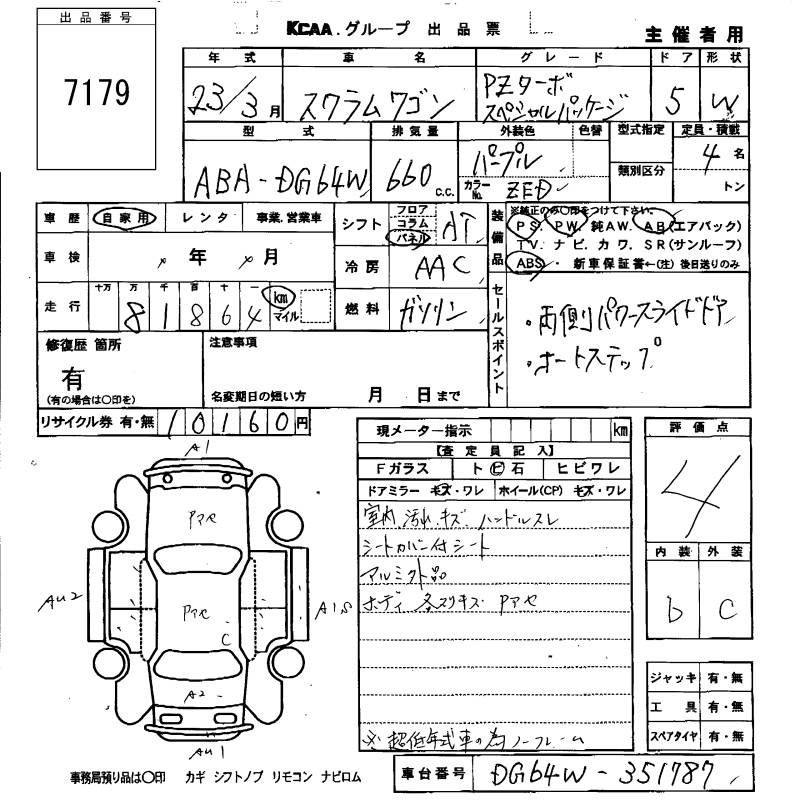 出品番号
7179
KCAA.グループ 出品票
主催者用
年式 車名 グレード ドア 形状
23/3月 スクラムワゴン PZターボ スペシャルパッケージ 5 W
型式 排気量 外装色 色替 型式指定 定員・積載
ABA-DG64W 660 c.c. パープル 4名
カラーNo. ZED 類別区分 トン
車歴 自家用 レンタ 事業.営業車
シフト フロア コラム パネル AT
装備品
※純正のみ〇印をつけて下さい。
PS. PW. 純AW. AB(エアバック)
TV. ナビ. カワ. SR(サンルーフ)
ABS・ 新車保証書←(注)後日送りのみ
車検 年 月
冷房 AAC
走行 十万 万 千 百 十 一 km マイル
81864
燃料 ガソリン
セールスポイント
・両側パワースライドドア
・オートステップ
修復歴 箇所
有
(有の場合は〇印を)
注意事項
名変期日の短い方 月 日まで
リサイクル券 有・無 10160円
現メーター指示 km
【査定員記入】
Fガラス ト ビ 石 ヒビワレ
ドアミラー キズ・ワレ ホイール(CP) キズ・ワレ
室内 汚れ キズ ハンドルスレ
シートカバー付シート
アルミ欠品
ボディ 各スリキズ Pアセ
※超低年式車の為ノークレーム
評価点
4
内装 外装
b C
ジャッキ 有・無
工具 有・無
スペアタイヤ 有・無
A1
Pアセ
AU2
Pアセ
A1S
C
A2
AU1
事務局預り品は〇印 カギ シフトノブ リモコン ナビロム
車台番号 DG64W-351787